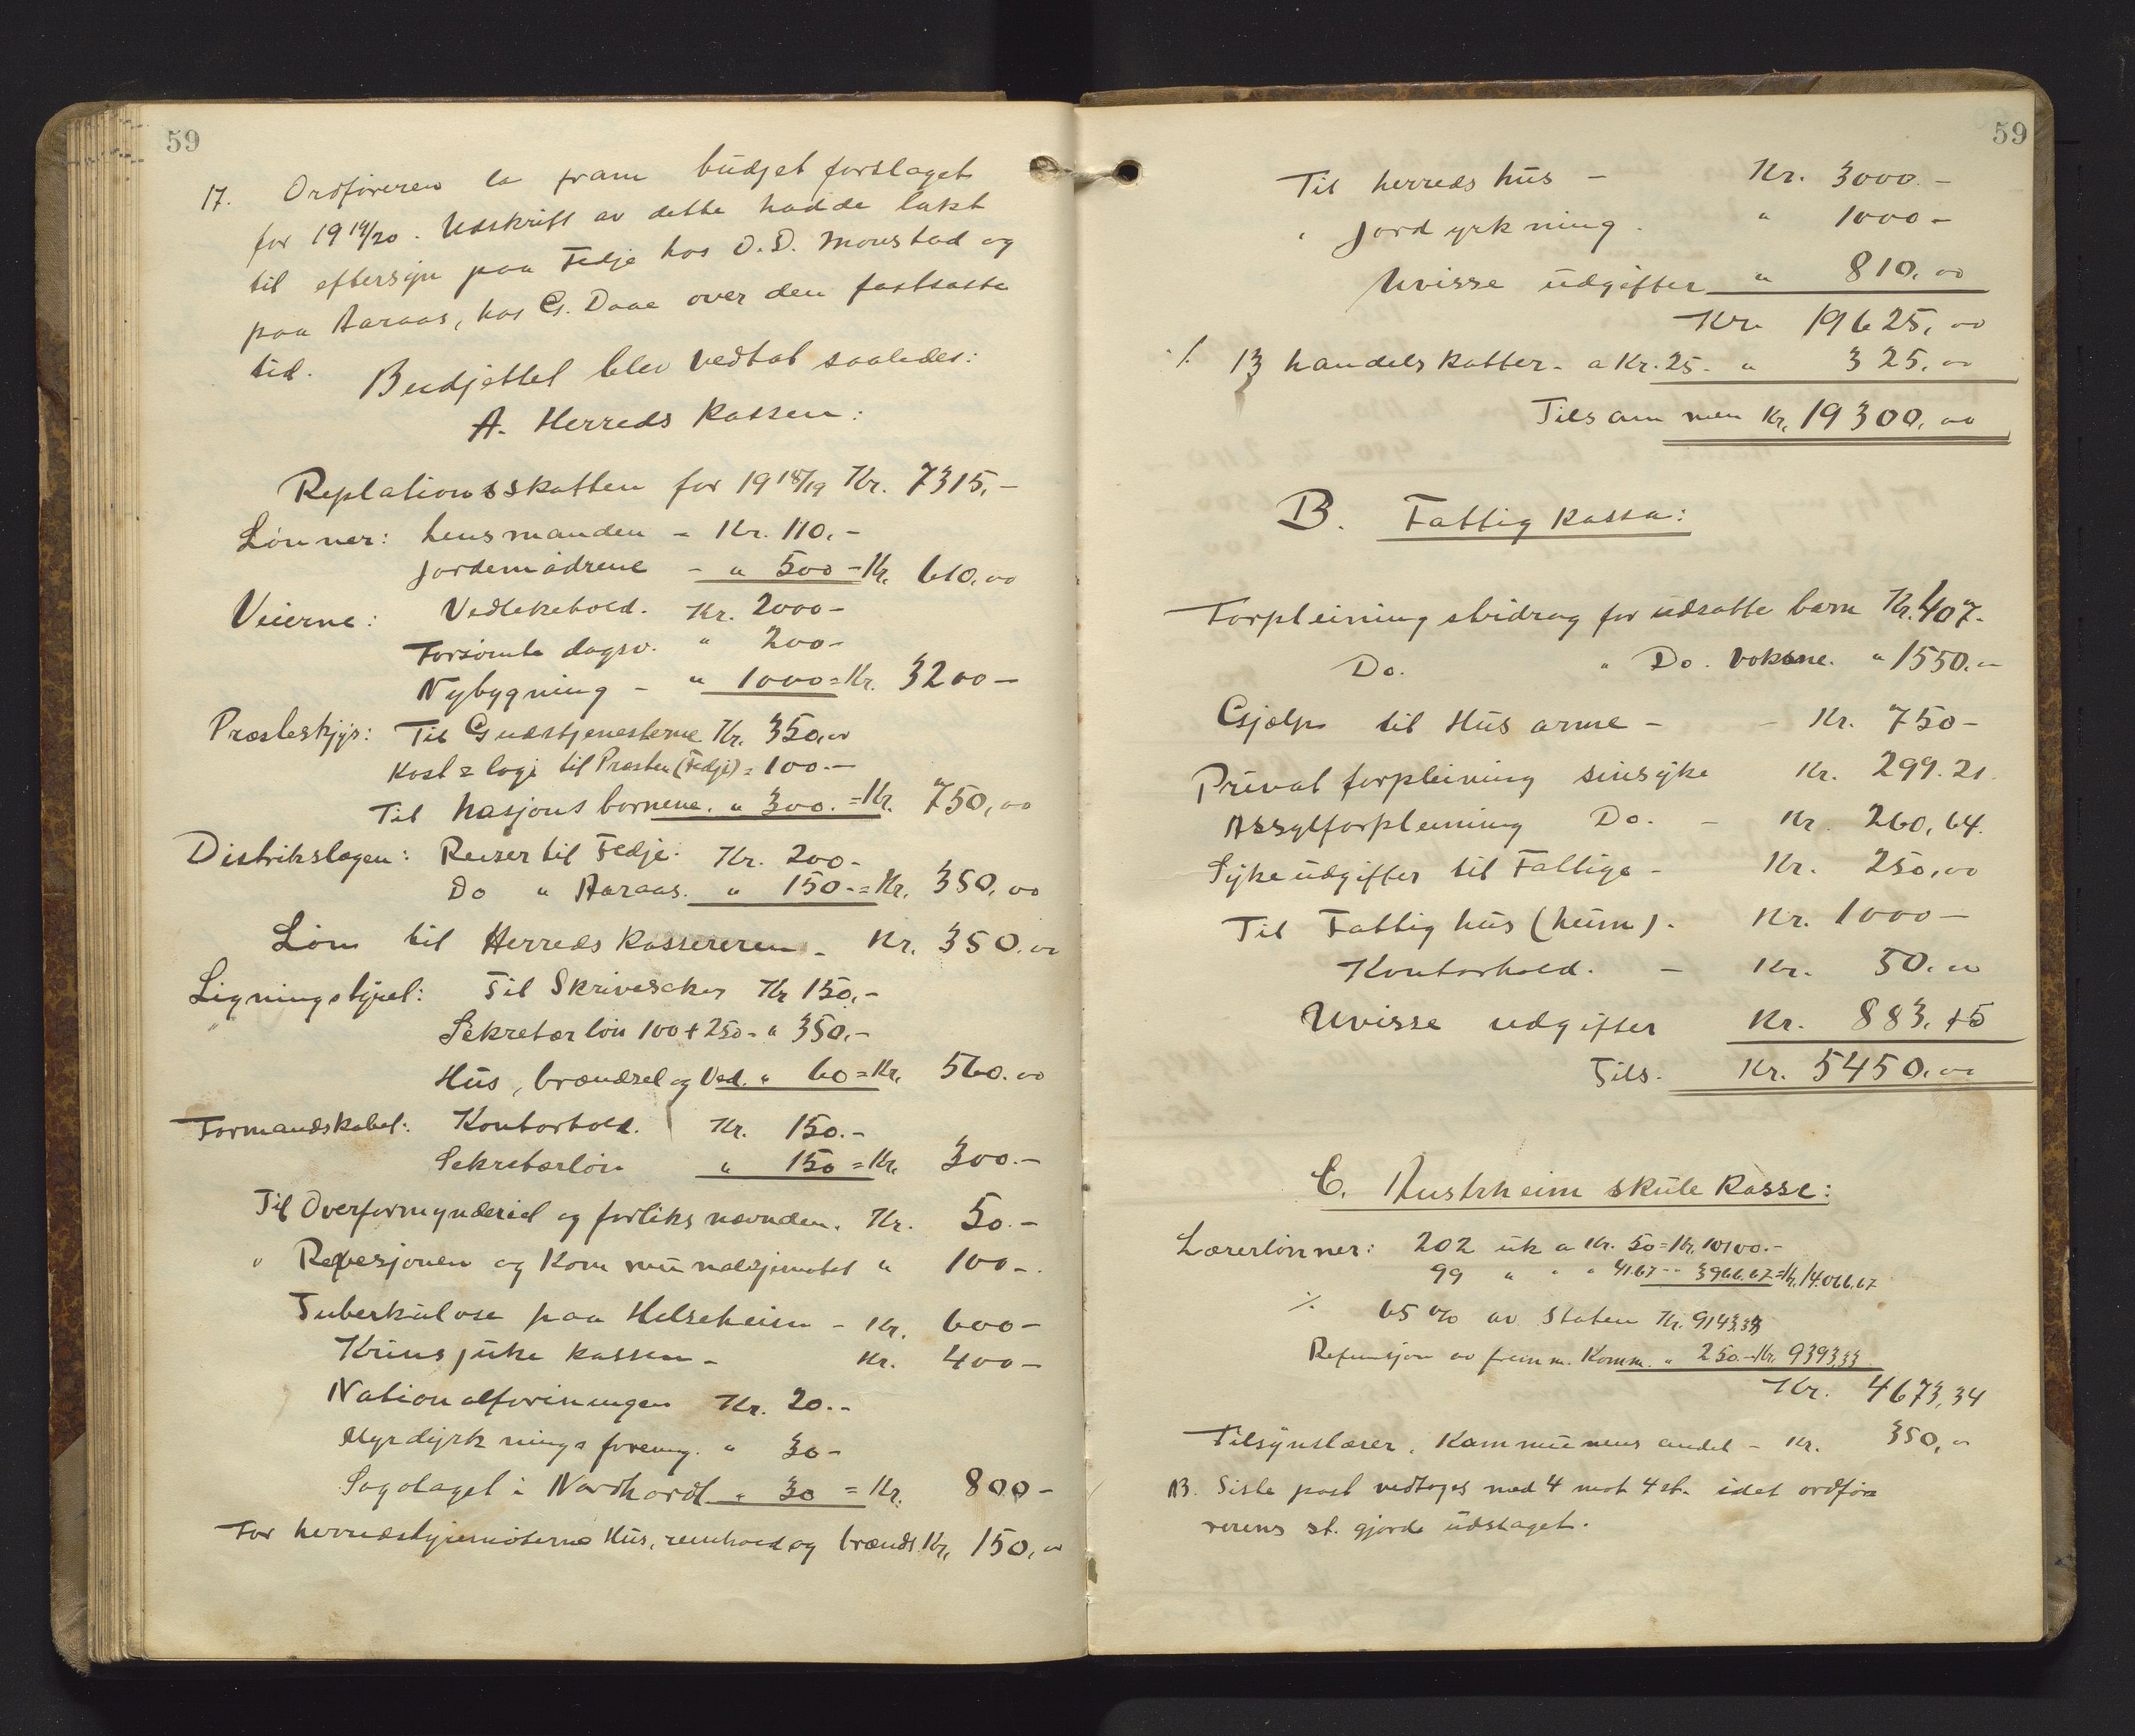 59
17. Ordføreren la fram budjet forslaget
for 1919/20. Utskrift av dette hadde lakt
til eftersyn paa Fedje hos O. D. Monstad og
paa Aaraas, hos G. Daae over den fastsatte
tid.
Budjettet blev vedtat saaledes:
A. Herreds kassen:
Replationsskatten for 1918/19 Kr. 7315,-
Lönner: lensmanden - Kr. 110,-
jordemødrene - " 500 = Kr. 610,00
Veierne: Vedlikehold. Kr. 2000-
Forsömte dagsv. " 200-
Nybygning - " 1000 = Kr. 3200-
Præsteskyss: Til Gudstjenesterne Kr. 350,00
Kost & logi til Præsten (Fedje) = 100.-
Til Nasjons bornene. " 300. = Kr. 750,00
Distrikslægen: Reiser til Fedje. Kr. 200-
Do " Aaraas. " 150- = Kr. 350,00
Lön til Herreds kassereren - Kr. 350.00
Ligningstyret: Til Skrivesaker Kr 150,-
Sekretær lön 100 + 250- " 350,-
Hüs, brændsel og Ved. " 60 = Kr. 560.00
Formandskabet: Kontorhold. Kr. 150.-
Sekretærlön " 150 = Kr. 300.-
Til Overformynderiet og forliks nævnden. Kr. 50.-
" Revesjonen og Kommünalsjemotet " 100-.
Tuberkülose paa Helseheim - Kr. 600-
Krins jüke kassen - Kr. 400-
Nationalforiningen Kr. 20.-
Myrdyrknings forening. " 30-
Sogolaget i Nordhordl. " 30 = Kr. 800-
For herredstyremöterne Hüs, renhold og brænds. Kr. 150,00
59
Til herreds hüs - Kr. 3000.-
" Jord yrkning. " 1000-
Uvisse üdgifter " 810,00
Kr. 19625,00
./. 13 handelskatter - a Kr. 25- " 325,00
Tilsammen Kr. 19300,00
B. Fattig kassa:
Forpleiningsbidrag for üdsatte barn Kr. 407.-
Do. " Do. voksne. " 1550.-
Gjælp til Hüs arme - - Kr. 750-
Privat forpleining sinsyke Kr. 299.21.
Assylforpleining Do. - Kr. 260,64.
Syke üdgifter til Fattige - Kr. 250,00
Til Fattig hüs (heim). Kr. 1000-
Kontorhold. - Kr. 50.00
Uvisse udgifter Kr. 883.15
Tils. Kr. 5450.00
C. Austrheim skule kasse:
Lærerlönner: 202 ük a Kr. 50 = Kr. 10100.-
99 " " " 41.67 - - 3966,67 = Kr. 14.066,67
./. 65 % av Staten Kr. 9143.33
Refunsjon av frem m. Komm. " 250.- = Kr. 9393,33
Kr. 4673,34
Tilsynslærer, Kommünens andel - Kr. 350,00
NB. Siste post vedtoges med 4 mot 4 st. idet ordfö
rerens st. gjorde üdslaget.